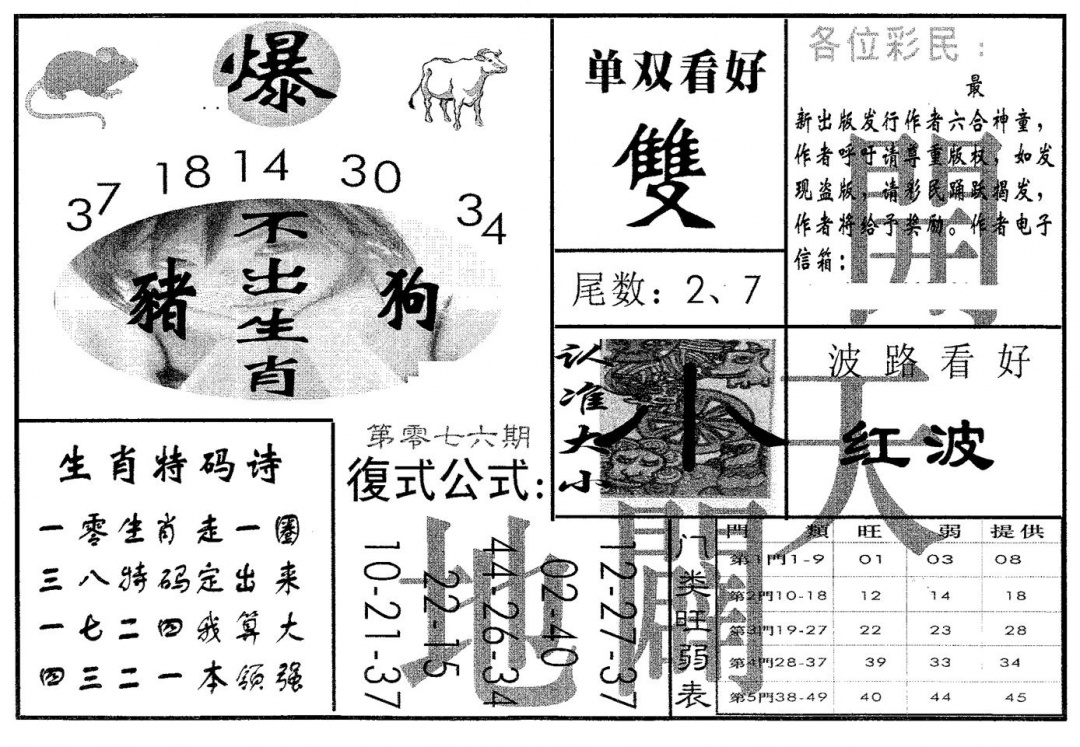 爆
37
18
14
30
34
不出生肖
豬
狗
单双看好
雙
尾数：2、7
各位彩民：
最
新出版发行作者六合神童，
作者呼吁请尊重版权，如发
现盗版，请彩民踊跃揭发，
作者将给予奖励。作者电子
信箱：
開
认准大小
小
波路看好
红波
天
生肖特码诗
一零生肖走一圈
三八特码定出来
一七二四我算大
四三二一本领强
第零七六期
復式公式：
10-21-37
22-15
44-26-34
02-40
12-27-37
地
闢
门类旺弱表
門類 旺 弱 提供
第1門1-9 01 03 08
第2門10-18 12 14 18
第3門19-27 22 23 28
第4門28-37 39 33 34
第5門38-49 40 44 45